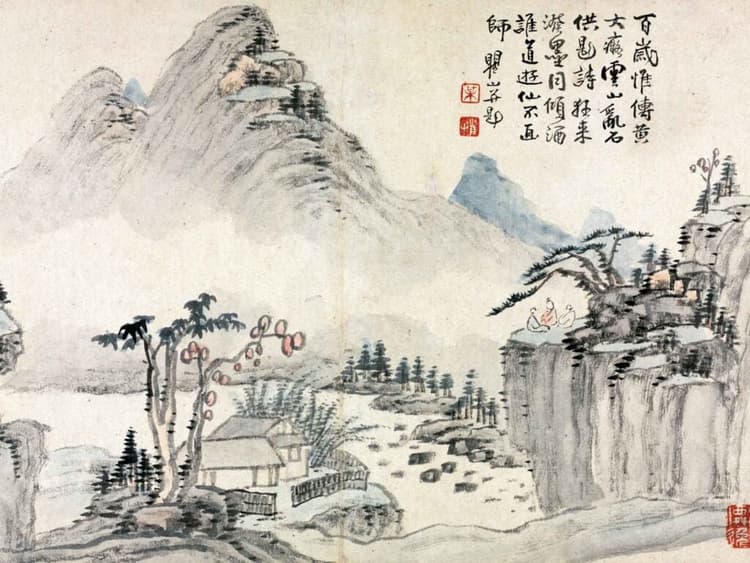 百歲惟傳黃
大癡雲山亂石
供題詩狂來
潑墨同傾酒
誰道遊仙不直
師 瞿山并題